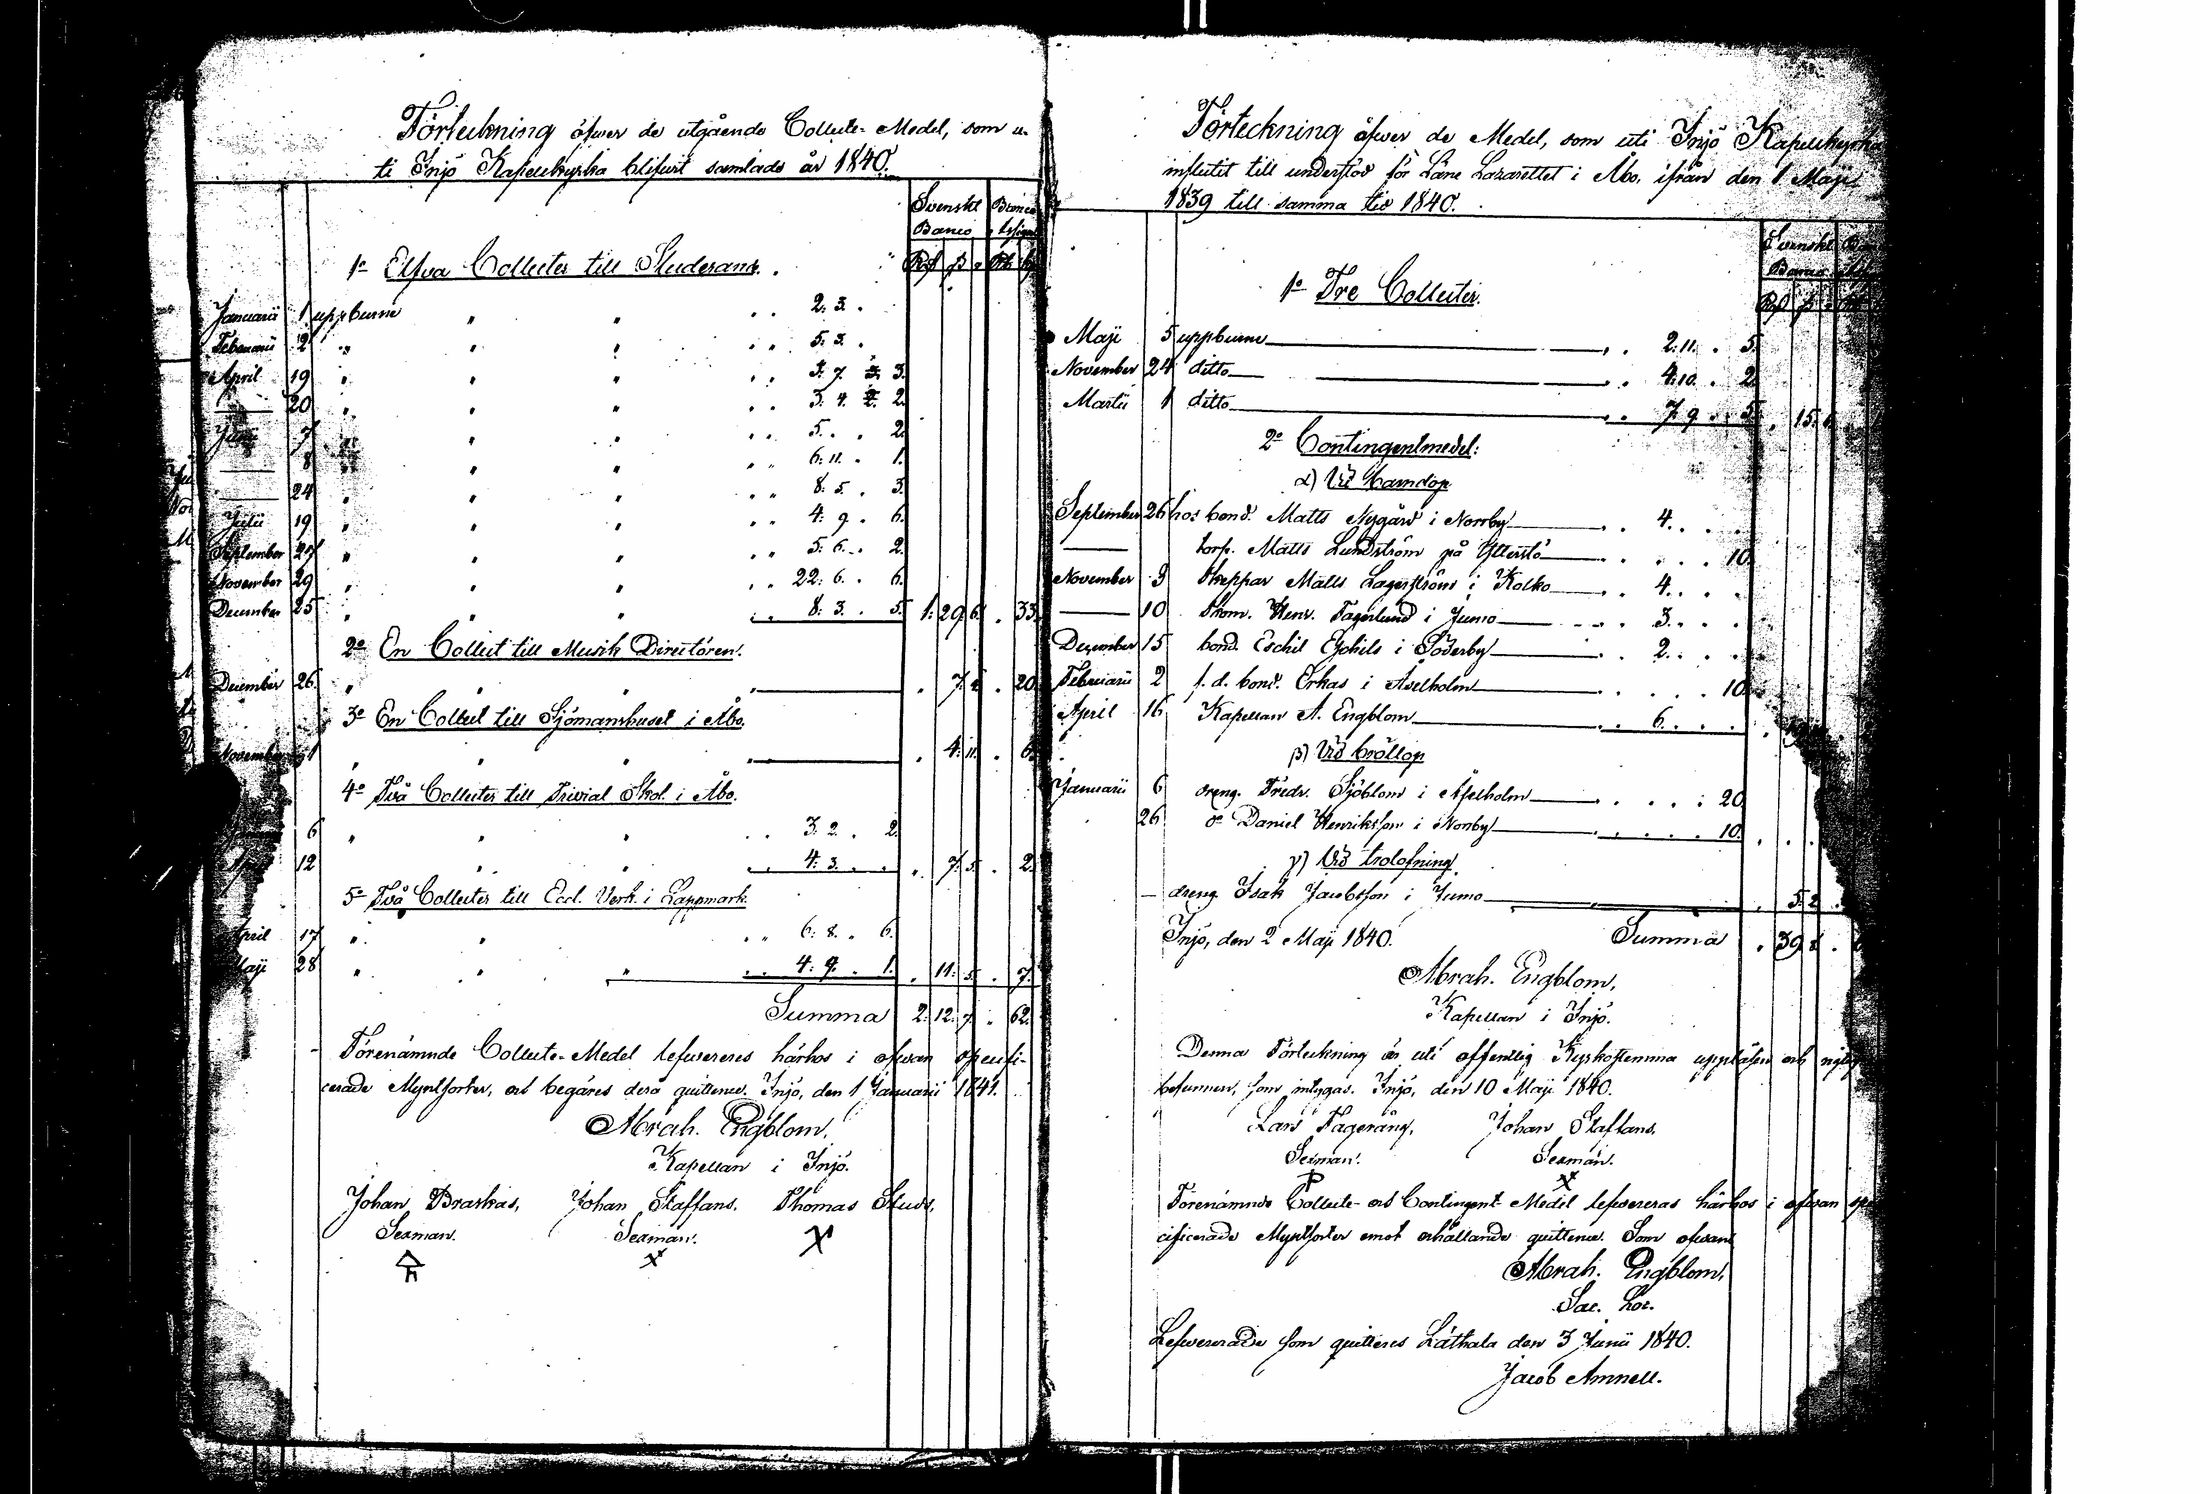 Förteckning öfwer de utgående Collecte-Medel, som u-
ti Iniö Kapellkyrka blifwit samlade år 1840.
Svenskt Banco
Banco
Banco
Rd ß
1o Elfva Collecter till Studerande.
Januarii 1 uppburne " " . . 2. 3. .
Februarii 2 " " " . . 5. 3. .
April 19 " " " . . 3. 7. 3.
— 20 " " " . . 3. 4. 2.
Junii 7 " " " . . 5. . . 2.
— 8 " " " . . 6. 11. . 1.
— 24 " " " . . 8. 5. . 3.
Julii 19 " " " . . 4. 9. . 6.
September 27 " " " . . 5. 6. . 2.
November 29 " " " . . 22. 6. . 6.
December 25 " " " . . 8. 3. . 5. 1. 29. 6. . 33.
2o En Collect till Musik Directören.
December 26. " " " . 7. . 20.
3o En Collect till Sjömanshuset i Åbo.
November 1 " " " . 4. 11. . 6.
4o Två Collecter till Trivial Skol. i Åbo.
6 " " " . . 3. 2. . 2.
12 " " . . 4. 3. . . . 7. 5. . 2.
5o Två Collecter till Eccl. Verk. i Lappmark.
April 17 " " . . 6. 8. . 6.
Maji 28 " " " . . 4. 9. . 1. . 11. 5. . 7.
Summa 2. 12. 7. . 62.
Förenämnde Collecte-Medel lefwereres härhos i ofwan specifi-
cerade Myntsorter, och begäres derå quittence. Iniö, den 1 Januarii 1841.
Abrah. Engblom,
Kapellan i Iniö.
Johan Braskas, Johan Staffans. Thomas Studs,
Sexman. Sexman.
Förteckning öfwer de Medel, som uti Iniö Kapellkyrka
influtit till understöd för Läne Lazarettet i Åbo, ifrån den 1 Maji
1839 till samma tid 1840.
Svenskt
Banco
Rd ß
1o Tre Collecter.
Maji 5 uppburne — . . 2. 11. . 5.
November 24 ditto — . . 4. 10. . 2.
Martii 1 ditto — . . 7. 9. . 5. . 15.
2o Contingentmedel:
α) Vid barndop
September 26 hos bond. Matts Nygård i Norrby — . . 4. . .
— torp. Matts Lundström på Ytterstö — . . . . 10.
November 3 Skeppar Matts Lagerström i Kolko — . . 4. . .
— 10 Skom. Henr. Fagerlund i Jumo — . . 3. . .
December 15 bond. Eschil Eskils i Söderby — . . 2. . .
Februarii 2 f. d. bond. Erkas i Åselholm — . . . . 10.
April 16 Kapellan A. Engblom — . . 6. . .
β) Vid bröllop
Januarii 6 dreng. Fredr. Sjöblom i Åselholm — . . . . 20.
26 do Daniel Henriksson i Norrby — . . . . 10.
γ) Vid trolofning.
— dreng. Isak Jacobsson i Jumo — . 5. 2.
Iniö, den 2 Maji 1840. Summa . 39.
Abrah. Engblom,
Kapellan i Iniö.
Denna Förteckning är uti offentlig Kyrkostemma uppläsen och
befunnen, som intygas. Iniö, den 10 Maji 1840.
Lars Fageräng, Johan Staffans.
Sexman. Sexman.
Förenämnde Collecte- och Contingent Medel lefwereras härhos i ofwan spe
cificerade Myntsorter emot erhållande quittence. Som ofwan
Abrah. Engblom,
Sac. Loc.
Lefwererade som quitteres Låthala den 3 Junii 1840.
Jacob Amnell.